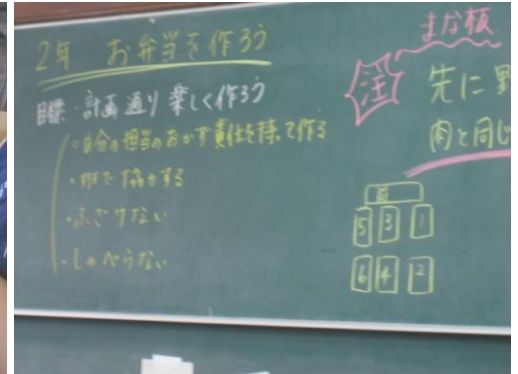 2年 お弁当を作ろう
目標・計画通り楽しく作ろう
・自分の担当のおかず責任を持って作る
・班で協力する
・ふざけない
・しゃべらない
まな板
注
先に野
肉と同じ
5 3 1
6 4 2